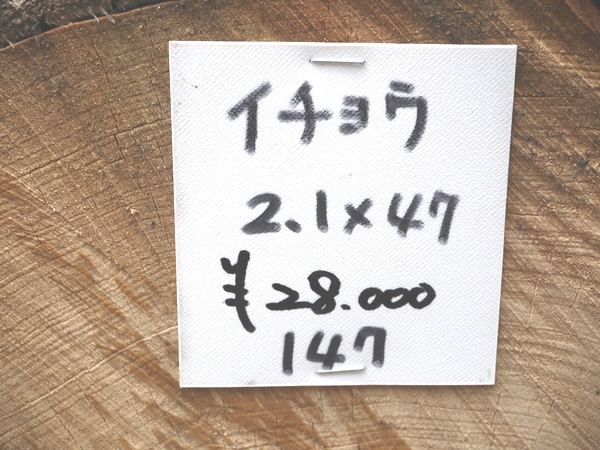 イチョウ
2.1×47
¥28.000
147